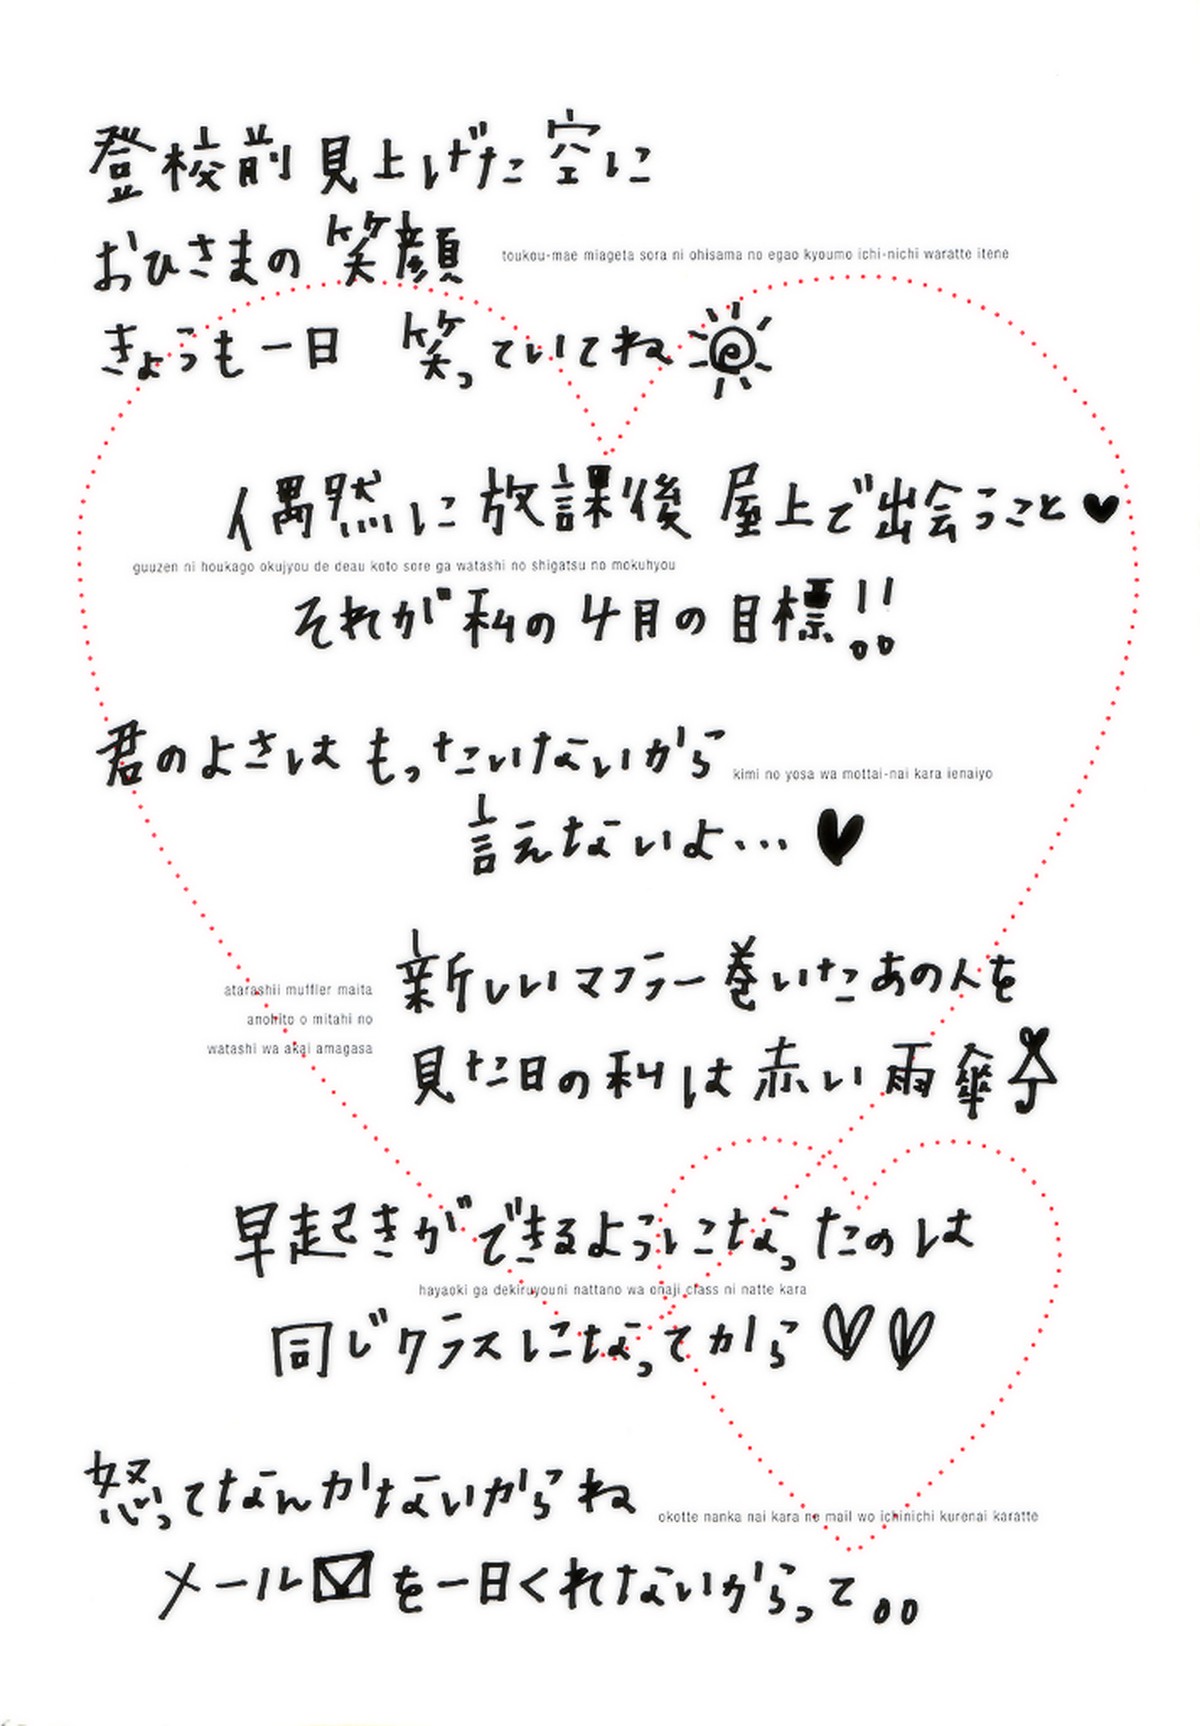 登校前 見上げた空に
おひさまの笑顔
toukou-mae miageta sora ni ohisama no egao kyoumo ichi-nichi waratte itene
きょうも一日 笑っていてね
偶然に放課後 屋上で出会うこと♥
guuzen ni houkago okujyou de deau koto sore ga watashi no shigatsu no mokuhyou
それが私の4月の目標!!
君のよさは もったいないから
kimi no yosa wa mottai-nai kara ienaiyo
言えないよ…♥
新しいマフラー巻いたあの人を
atarashii muffler maita
anohito o mitahi no
watashi wa akai amagasa
見た日の私は赤い雨傘
早起きができるようになったのは
hayaoki ga dekiruyouni nattano wa onaji class ni natte kara
同じクラスになってから♡♡
怒ってなんかないからね
okotte nanka nai kara ne mail wo ichinichi kurenai karatte
メール✉を一日くれないからって。。